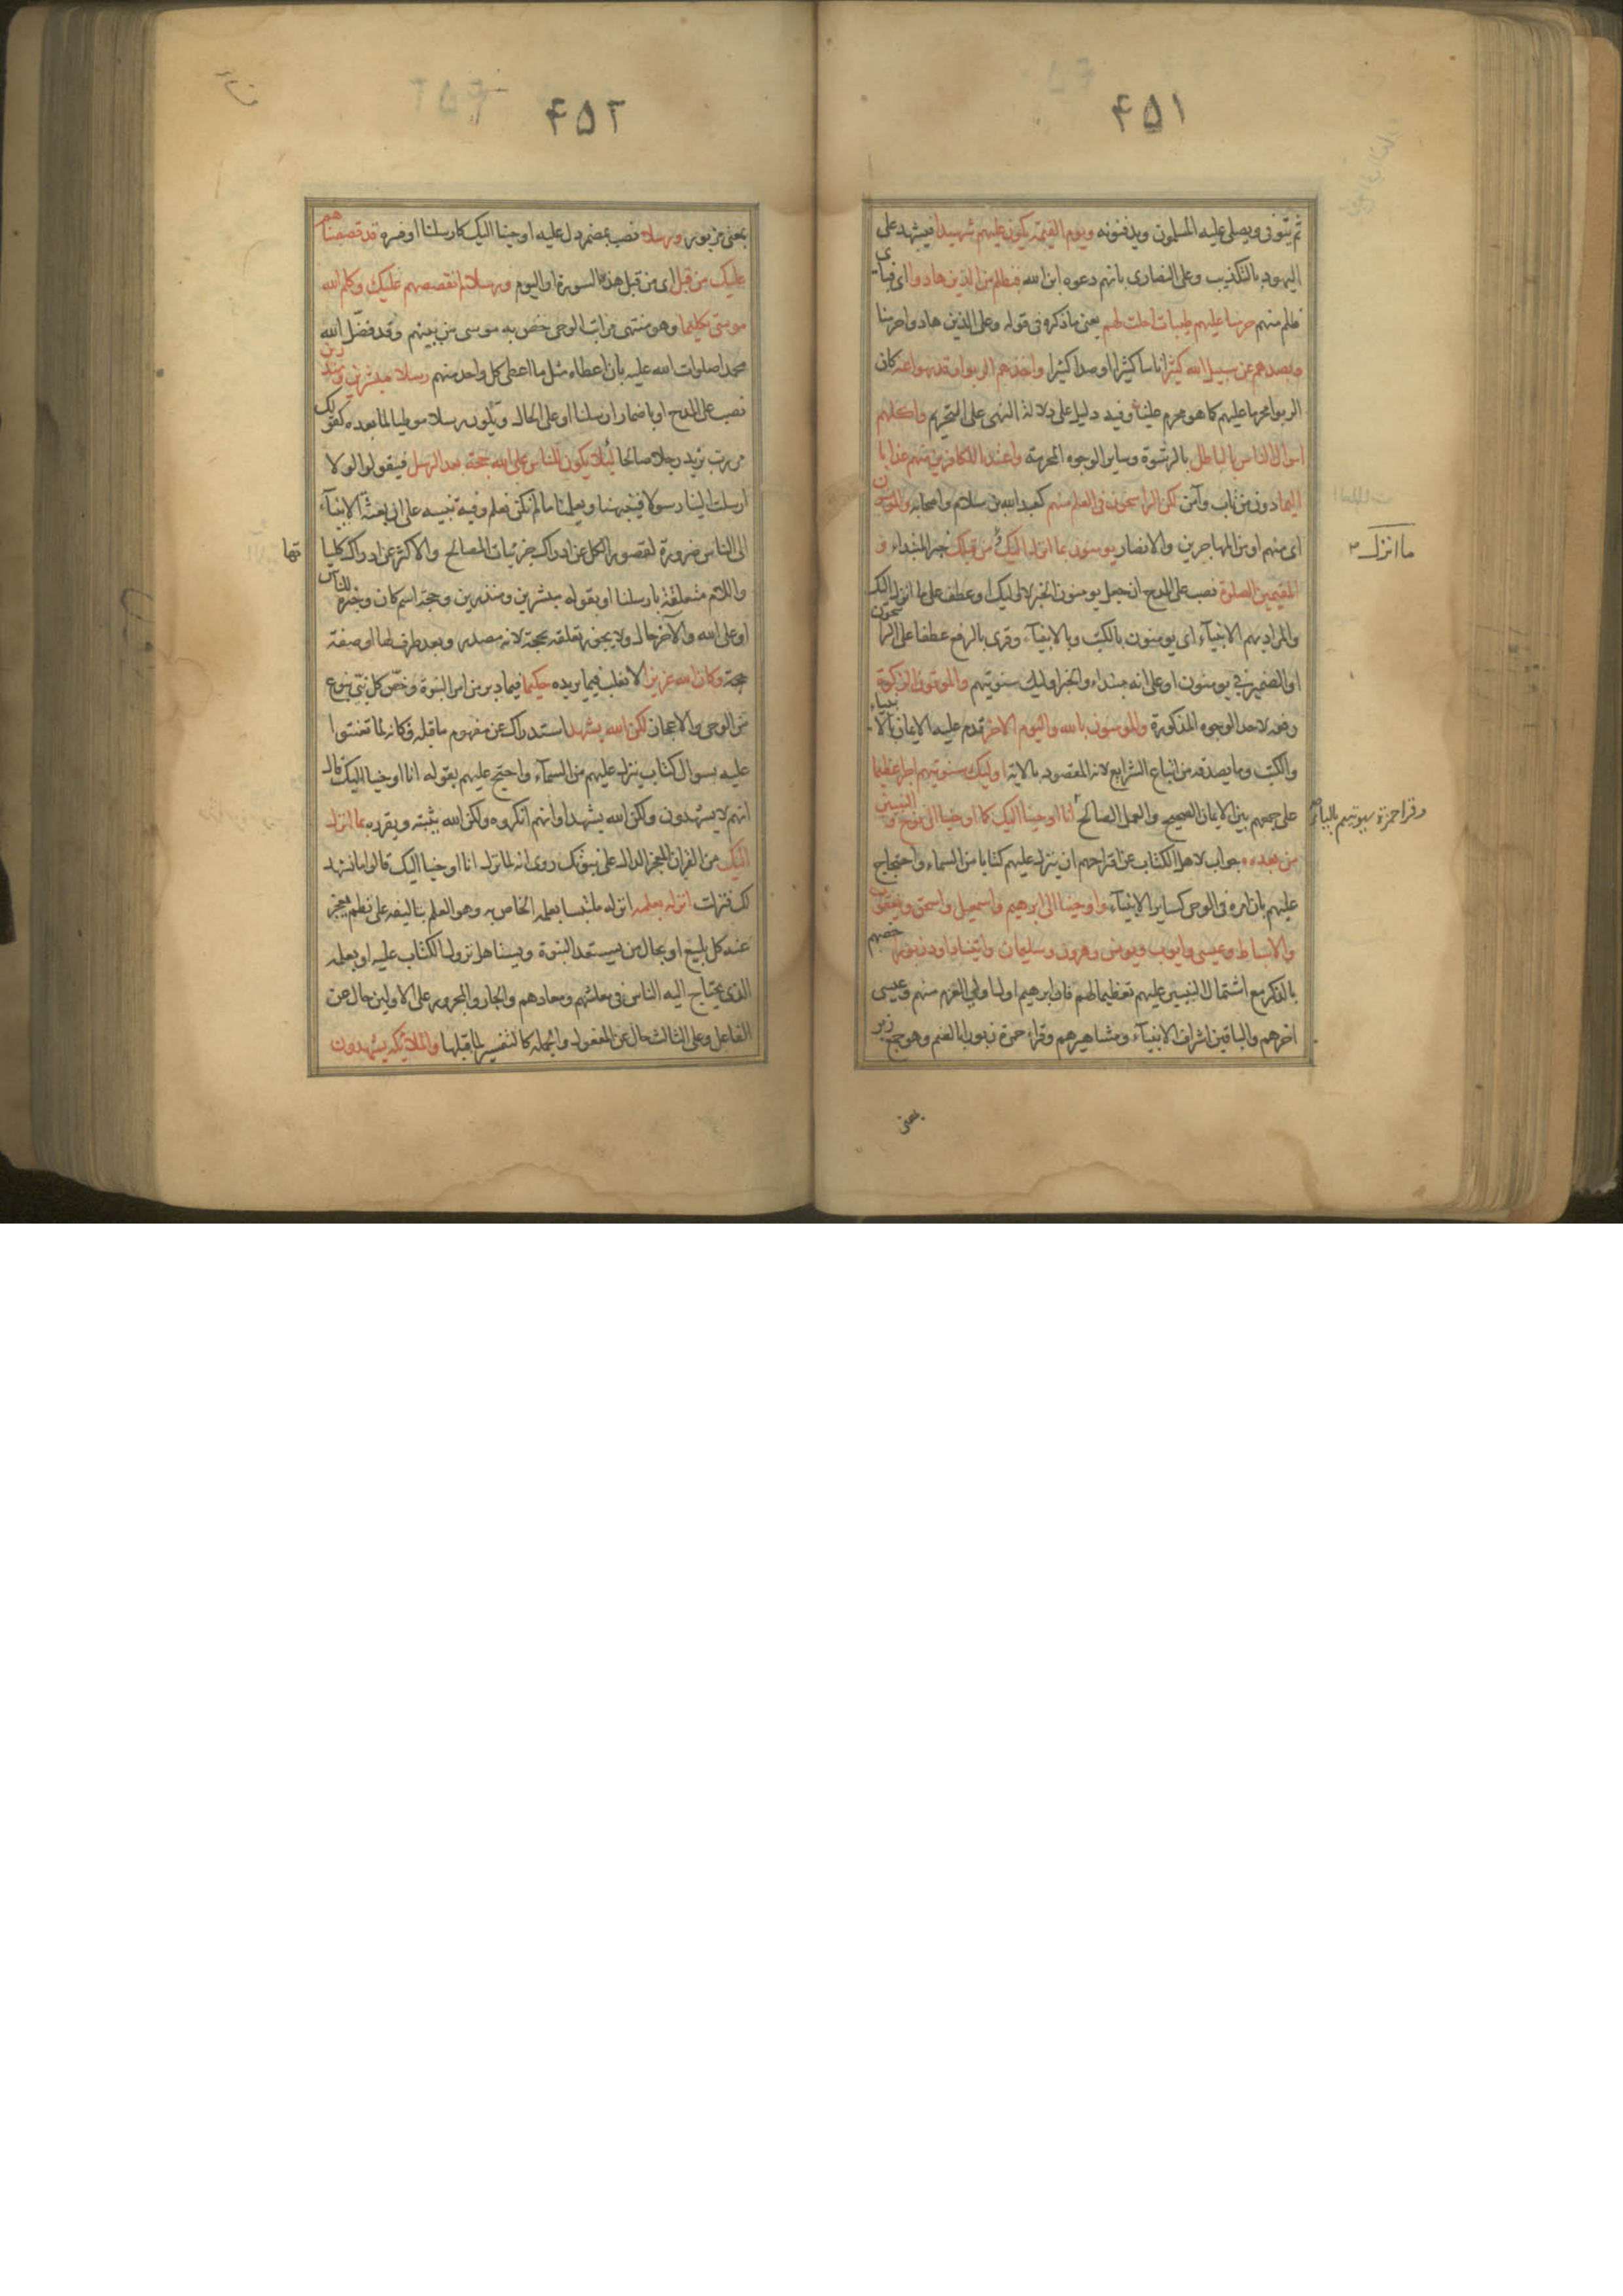 ۴۵۱
ثم يتوفى ويصلى عليه المسلمون ويدفنونه ويوم القيمة يكون عليهم شهيدا فيشهد على
اليهود بالتكذيب وعلى النصارى بانهم دعوه ابن الله فبظلم من الذين هادوا اى فباى
ظلم منهم حرمنا عليهم طيبات احلت لهم يعنى ما ذكره فى قوله وعلى الذين هادوا حرمنا
وبصدهم عن سبيل الله كثيرا ناسا كثيرا او صدا كثيرا واخذهم الربوا وقد نهوا عنه كان
الربوا محرما عليهم كما هو محرم علينا وفيه دليل على دلالة النهى على التحريم واكلهم
اموال الناس بالباطل بالرشوة وساير الوجوه المحرمة واعتدنا للكافرين منهم عذابا
اليما دون من تاب وآمن لكن الراسخون فى العلم منهم كعبد الله بن سلام واصحابه والمومنون
اى منهم او من المهاجرين والانصار يومنون بما انزل اليك وما انزل من قبلك خبر المبتداء و
ما انزل
المقيمين الصلوة نصب على المدح ان جعل يومنون الخبر لاولئك او عطف على ما انزل اليك
والمراد بهم الانبيآء اى يومنون بالكتب وبالانبيآء وقرى بالرفع عطفا على الراسخون
او الضمير فى يومنون او على انه مبتداء والخبر اوليك سنوتيهم والموتون الزكوة
رفعه لاحد الوجوه المذكورة والمومنون بالله واليوم الاخر قدم عليه الايمان بالانبياء
والكتب وما يصدقه من اتباع الشرايع لانه المقصود بالاية اوليك سنوتيهم اجرا عظيما
على جمعهم بين الايمان الصحيح والعمل الصالح انا اوحينا اليك كما اوحينا الى نوح والنبيين
وقرا حمزة سيوتيهم بالياء
من بعده جواب لاهل الكتاب عن اقتراحهم ان ينزل عليهم كتابا من السماء واحتجاج
عليهم بان امره فى الوحى كساير الانبيآء واوحينا الى ابرهيم واسمعيل واسحق ويعقوب
والاسباط وعيسى وايوب ويونس وهرون وسليمان واتينا داود زبورا خصهم
بالذكر مع اشتمال النبيين عليهم تعظيما لهم فان ابرهيم اول اولى العزم منهم وعيسى
اخرهم والباقين اشراف الانبيآء ومشاهيرهم وقراء حمزة زبورا بالضم وهو جمع زبر
بمعنى
۴۵۲
بمعنى مزبور ورسلا نصب بمضمر دل عليه اوحينا اليك كارسلنا او فسره قد قصصناهم
عليك من قبل اى من قبل هذه السورة او اليوم ورسلا لم نقصصهم عليك وكلم الله
موسى تكليما وهو منتهى مراتب الوحى خص به موسى من بينهم وقد فضّل الله
محمدا صلوات الله عليه بان اعطاه مثل ما اعطى كل واحد منهم رسلا مبشرين ومنذرين
نصب على المدح او باضمار ارسلنا او على الحال ويكون رسلا موطيا لما بعده كقولك
مررت بزيد رجلا صالحا لئلا يكون للناس على الله حجة بعد الرسل فيقولوا لولا
ارسلت الينا رسولا فينبهنا ويعلمنا ما لم نكن نعلم وفيه تنبيه على ان بعثة الانبيآء
الى الناس ضرورة لقصور الكل عن ادراك جزئيات المصالح والاكثر عن ادراك كلياتها
واللام متعلقة بارسلنا او بقوله مبشرين ومنذرين وحجة اسم كان وخبره للناس
او على الله والآخر حال ولا يجوز تعلقه بحجة لانه مصدر وبعد ظرف لها او صفة
حجة وكان الله عزيزا لا يغلب فيما يريده حكيما فيما دبر من امر النبوة وخصّ كل نبىّ بنوع
من الوحى والاعجاز لكن الله يشهد استدراك عن مفهوم ما قبله فكانه لما تعنتوا
عليه بسوال كتاب ينزل عليهم من السمآء واحتج عليهم بقوله انا اوحينا اليك قال
انهم لا يشهدون ولكن الله يشهد او انهم انكروه ولكن الله يثبته ويقرره بما انزل
اليك من القران المعجز الدال على نبوتك روى انه لما نزل انا اوحينا اليك قالوا ما نشهد
لك فنزلت انزله بعلمه انزله ملتبسا بعلمه الخاص به وهو العلم بتاليفه على نظم يعجز
عنه كل بليغ او بحال من يستعد النبوة ويستاهل نزول الكتاب عليه او بعلمه
الذى يحتاج اليه الناس فى معاشهم ومعادهم والجار والمجرور على الاولين حال من
الفاعل وعلى الثالث حال عن المفعول والجملة كالتفسير لما قبلها والملائكة يشهدون